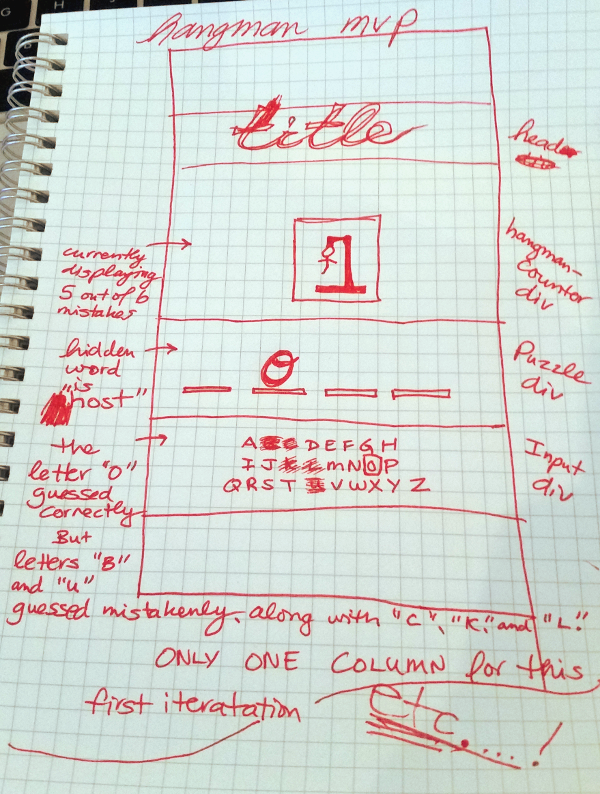 hangman mvp
title
header
currently
displaying
5 out of 6
mistakes
hangman-
counter
div
1
hidden
word
is
"host"
O
Puzzle
div
the
letter "O"
guessed
correctly
A D E F G H
I J M N O P
Q R S T V W X Y Z
Input
div
But
letters "B"
and "u"
guessed mistakenly, along with "C", "K," and "L."
ONLY ONE COLUMN for this
first iteratation
etc.....!